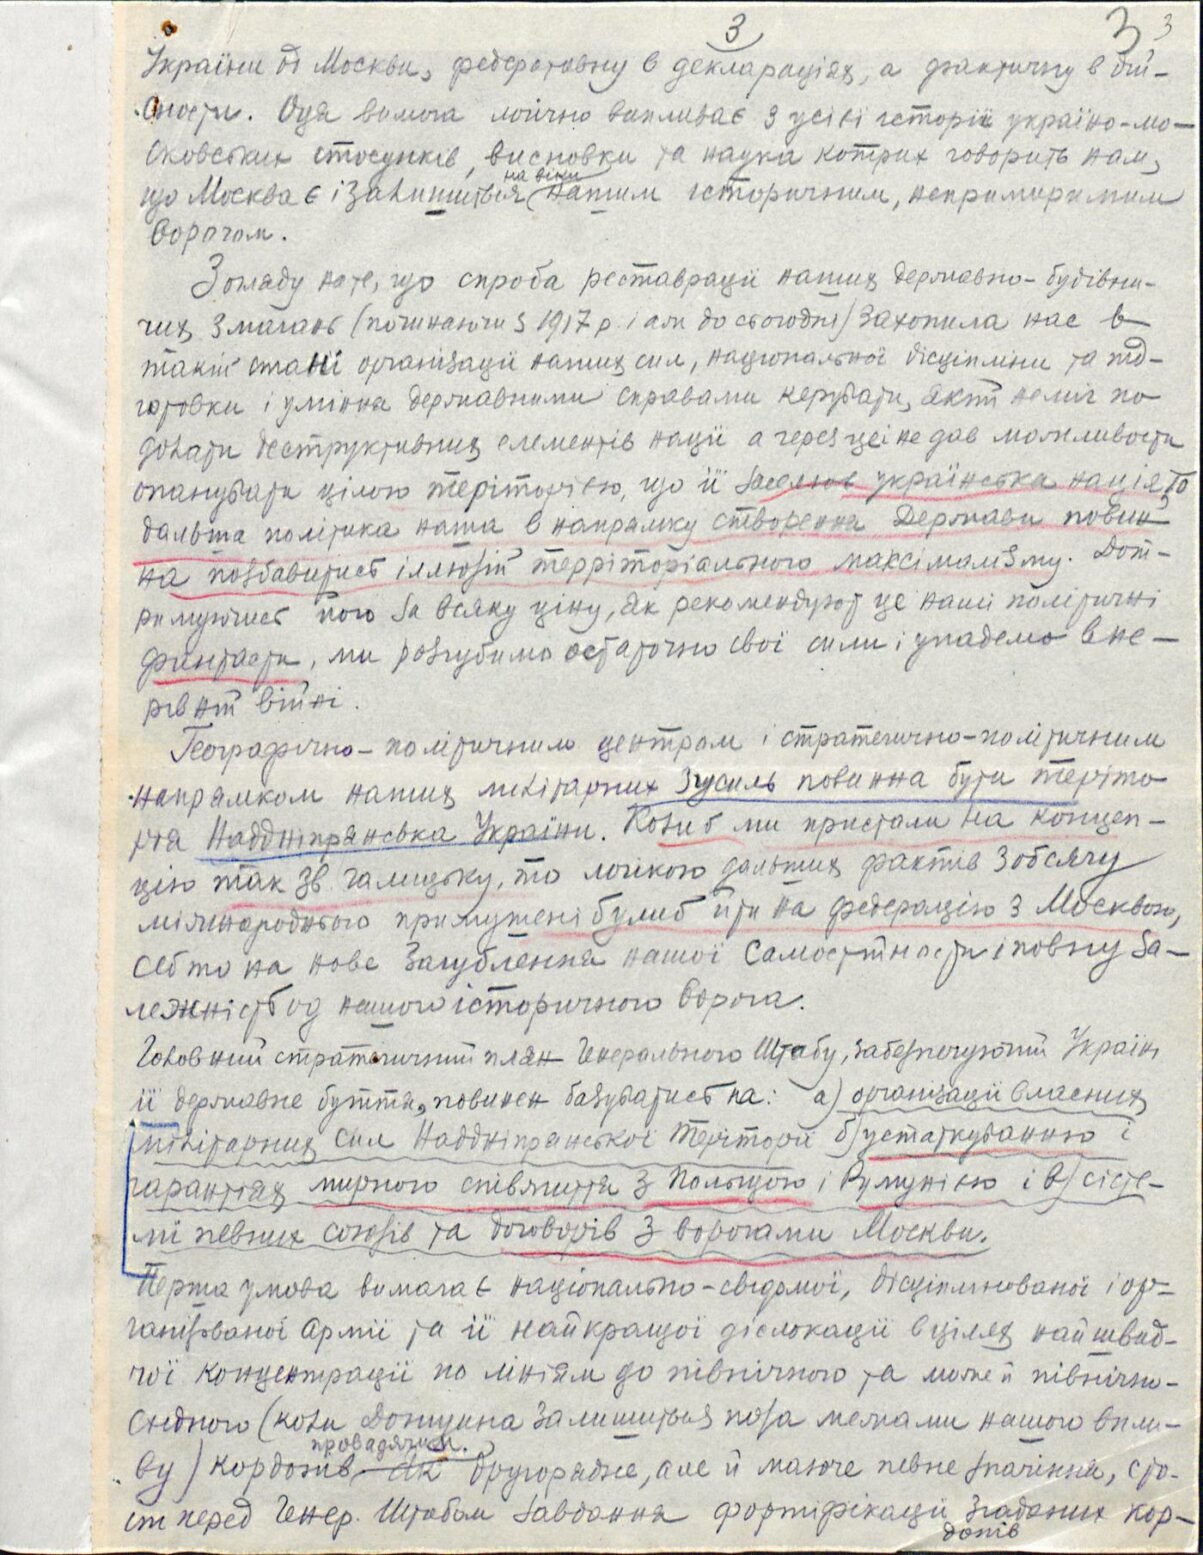 3
3 3
України од Москви, федеративну в деклараціях, а фактичну в дій-
сности. Оця вимога логічно випливає з усієї історії україно-мо-
сковських стосунків, висновки та наука котрих говорить нам,
що Москва є і залишиться на віки нашим історичним, непримиримим
ворогом.
Зогляду на те, що спроба реставрації наших державно-будівни-
чих змагань (починаючи з 1917 р. і аж до сьогодні) захопила нас в
такій стані організації наших сил, національної дісціпліни та під-
готовки і уміння державними справами керувати, який не міг по
долати деструктивних елементів нації а через це і не дав можливости
опанувати цілою теріторією, що її заселює українська нація, то
дальша політика наша в напрямку створення Держави повин-
на позбавитись іллюзій террітораільного максімалізму. Дот-
римуючись його за всяку ціну, як рекомендують це наші політичні
фантасти, ми розгубимо остаточно свої сили і упадемо в не-
рівній війні.
Географічно-політичним центром і стратегично-політичним
напрямком наших мілітарних зусиль повинна бути теріто
рія Наддніпрянська України. Колиб ми пристали на концеп-
цію так зв. галицьку, то логікою дальших фактів з обсягу
міжнароднього примушені булиб йти на федерацію з Москвою,
себто на нове загублення нашої Самостійности і повну за-
лежність од нашого історичного ворога.
Головний стратегичний плян Генерального Штабу, забезпечуючий Україні
її державне буття, повинен базуватись на: а) організації власних
мілітарних сил Наддніпрянської теріторії б) устаткуванню і
гарантіях мирного співжиття з Польщою і Румунією і в) сісте-
мі певних союзів та договорів з ворогами Москви.
Перша умова вимагає національно-свідомої, дісціплінованої і ор-
ганізованої Армії та її найкращої діслокації в цілях найшвид-
чої концентрації по лініям до північного та може й північно-
східного (коли Донщина залишиться поза межами нашого впли-
ву) кордонів провадячим. Як другорядне, але й маюче певне значіння, сто-
їт перед Генер. Штабом завдання фортіфікації згаданих кор-
донів